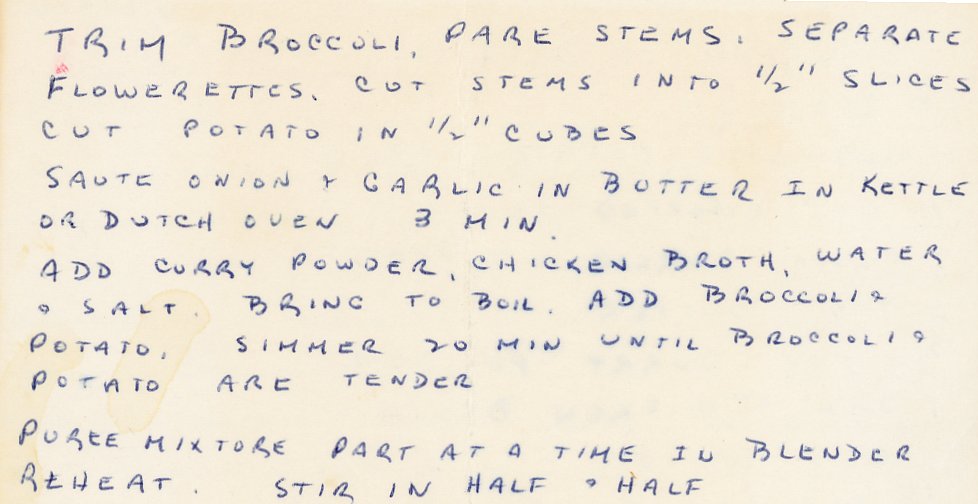 TRIM BROCCOLI, PARE STEMS. SEPARATE
FLOWERETTES. CUT STEMS INTO 1/2" SLICES
CUT POTATO IN 1/2" CUBES
SAUTE ONION & GARLIC IN BUTTER IN KETTLE
OR DUTCH OVEN 3 MIN.
ADD CURRY POWDER, CHICKEN BROTH, WATER
& SALT. BRING TO BOIL. ADD BROCCOLI &
POTATO. SIMMER 20 MIN UNTIL BROCCOLI &
POTATO ARE TENDER
PUREE MIXTURE PART AT A TIME IN BLENDER
REHEAT. STIR IN HALF & HALF